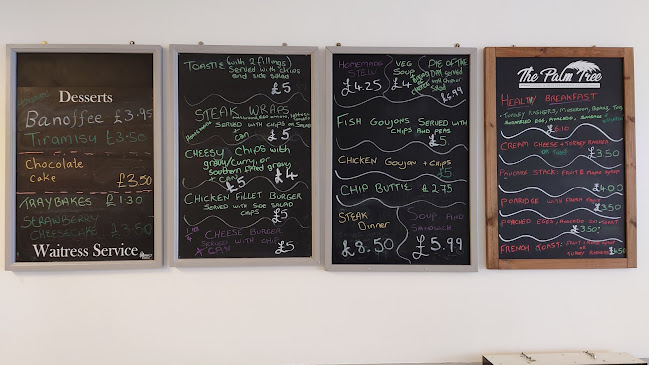 Desserts
Banoffee £3.95
Tiramisu £3.50
Chocolate
cake £3.50
TRAYBAKES £1.30
STRAWBERRY
CHEESECAKE £3.50
Waitress Service
TOASTIE (with 2 fillings)
Served with chips
and side salad
£5
STEAK WRAPS
SERVED WITH CHIPS OR SALAD
+ can £5
CHEESY CHIPS with
gravy/curry, or
southern fried gravy
+ CAN £5 £4
CHICKEN FILLET BURGER
SERVED WITH SIDE SALAD
CHIPS £5
CHEESE BURGER
SERVED WITH CHIPS
+ CAN £5
HOMEMADE
STEW
£4.25
VEG
SOUP
£4
PIE OF THE
DAY served
£6.99
FISH GOUJONS SERVED WITH
CHIPS AND PEAS
£5
CHICKEN GOUJON + CHIPS
£5
CHIP BUTTIE £2.75
STEAK
Dinner
£8.50
SOUP AND
SANDWICH
£5.99
The Palm Tree
HEALTHY BREAKFAST
£6.10
CREAM CHEESE + TURKEY RASHER
£3.50
PANCAKE STACK: FRUIT & Maple syrup
£4.00
PORRIDGE WITH FRESH FRUIT
£3.50
POACHED EGGS, AVOCADO ON TOAST.
£3.50
FRENCH TOAST: